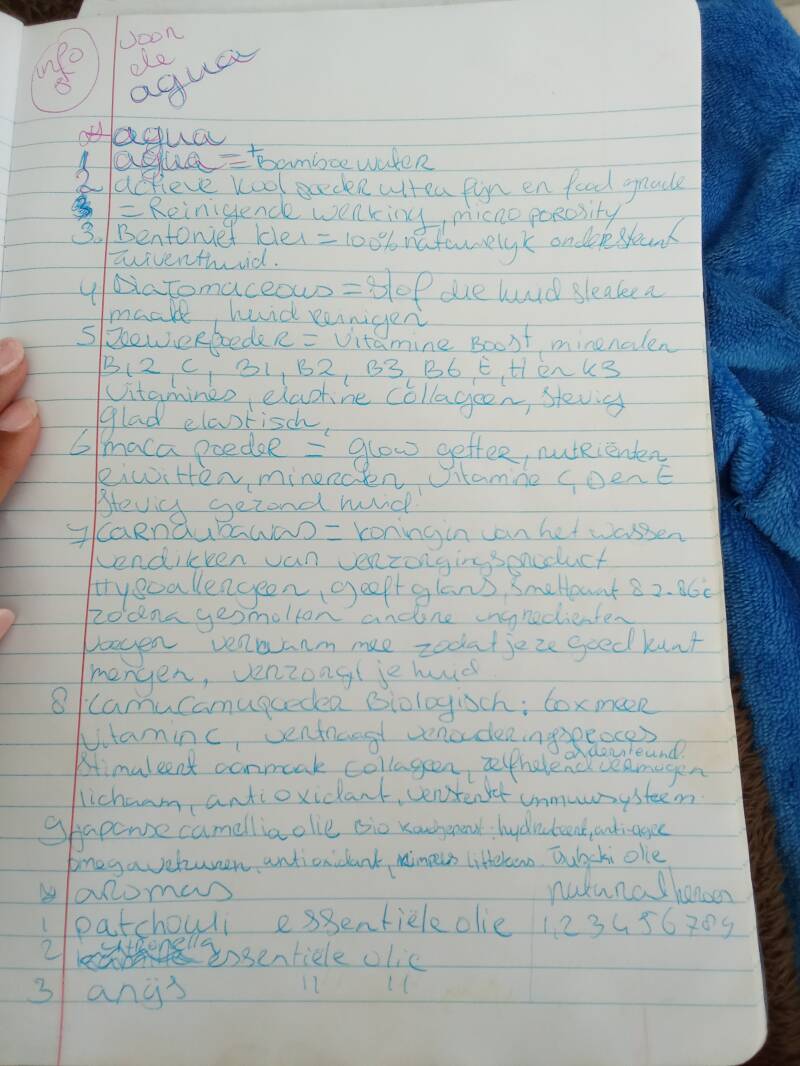 info
voor
de
agua
agua
1 agua = + Bamboewater
2 actieve kool poeder ultra fijn en food grade
= Reinigende werking, micro porosity
3. Bentoniet klei = 100% natuurlyk ondersteunt
zuivert huid.
4 Diatomaceous = stof die huid sterker
maakt, huid reinigen
5 Zeewierpoeder = vitamine Boost, mineralen
B12, C, B1, B2, B3, B6, E, H en K3
vitamines, elastine collageen, stevig
glad elastisch,
6 maca poeder = glow getter, nutriënten
eiwitten, mineralen, vitamine C, D en E
stevig gezond huid.
7 carnaubawas = koningin van het wassen
verdikken van verzorgingsproduct
Hypoallergeen, geeft glans, smeltpunt 82-86°c
zodra gesmolten andere ingredienten
voegen verwarm mee zodat je ze goed kunt
mengen, verzorgt je huid
8. camucamupoeder Biologisch: 60x meer
vitamin C, vertraagt verouderingsproces
ondersteund.
stimuleert aanmaak collageen, zelfhelend vermogen
lichaam, antioxidant, versterkt immuunsysteem.
9 japanse camellia olie Bio : hydrateert, anti-agee
omegavetzuren, antioxidant, rimpels littekens. Tsubaki olie
aromas natural heroes
1 patchouli essentiële olie 1,2 3 4 5 6 7 8 9
2 essentiele olie
3 anijs " "